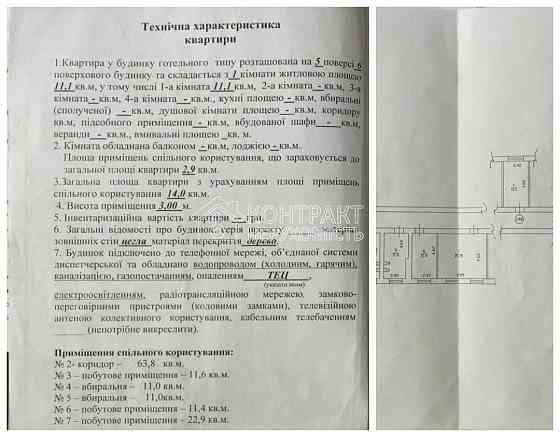 Технічна характеристика
квартири
1.Квартира у будинку готельного типу розташована на 5 поверсі 6
поверхового будинку та складається з 1 кімнати житловою площею
11,1 кв.м, у тому числі 1-а кімната 11,1 кв.м, 2-а кімната - кв.м, 3-я
кімната - кв.м, 4-а кімната - кв.м., кухні площею - кв.м, вбиральні
(сполученої) - кв.м, душової кімнати площею - кв.м, коридору
кв.м, підсобного приміщення - кв.м, вбудованої шафи - кв.м,
веранди - кв.м., вмивальні площею кв. м.
2. Кімната обладнана балконом - кв.м, лоджією - кв.м.
Площа приміщень спільного користування, що зараховується до
загальної площі квартири 2,9 кв.м.
3.Загальна площа квартири з урахуванням площі приміщень
спільного користування 14,0 кв.м.
4. Висота приміщення 3,00 м.
5. Інвентаризаційна вартість квартири -- грн.
6. Загальні відомості про будинок серія проекту матеріал
зовнішніх стін цегла матеріал перекриття дерево.
7. Будинок підключено до телефонної мережі, об'єднаної системи
диспетчерської та обладнано водопроводом (холодним, гарячим),
каналізацією, газопостачанням, опаленням ТЕЦ ,
(указати яким)
електроосвітленням, радіотрансляційною мережею, замково-
переговорними пристроями (кодовими замками), телевізійною
антеною колективного користування, кабельним телебаченням
(непотрібне викреслити).
Приміщення спільного користування:
№ 2- коридор – 63,8 кв.м.
№ 3 – побутове приміщення – 11,6 кв.м.
№ 4 – вбиральня – 11,0 кв.м.
№ 5 – вбиральня – 11,0кв.м.
№ 6 – побутове приміщення – 11,4 кв.м.
№ 7 – побутове приміщення – 22,9 кв.м.
КОНТРАКТ
НЕРУХОМІСТЬ